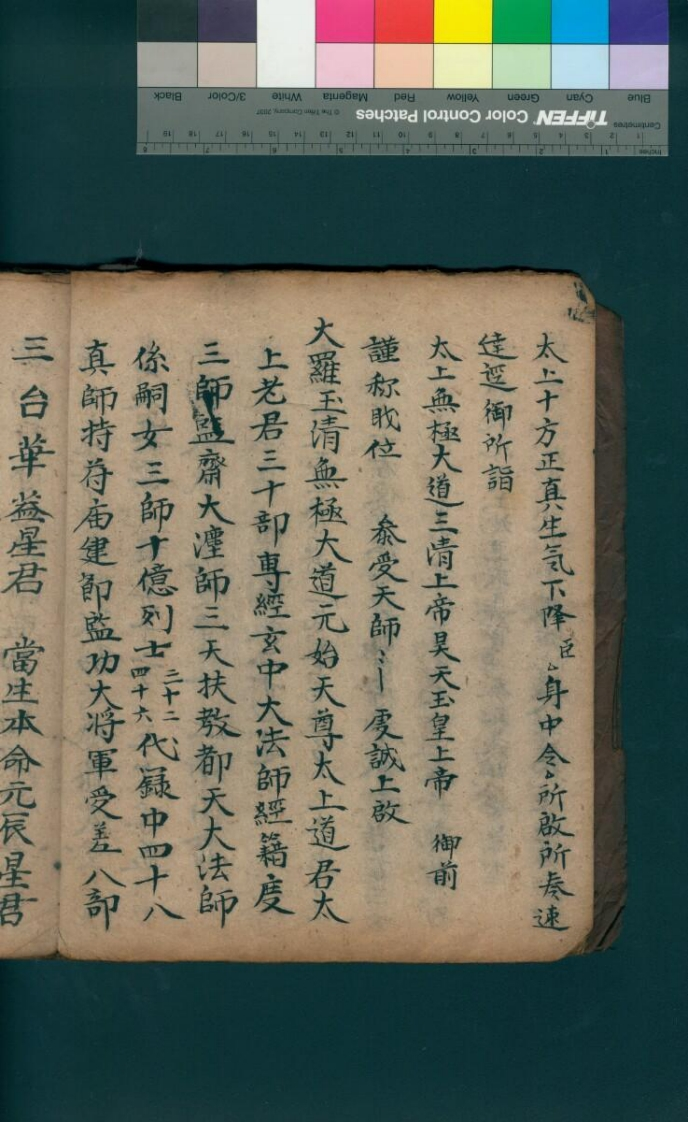 太上十方正真生氣下降臣〻身中令〻所啟所奏速
達逕御所詣
太上無極大道三清上帝昊天玉皇上帝 御前
謹称職位 叅受天師〻〡虔誠上啟
大羅玉清無極大道元始天尊太上道君太
上老君三十部專經玄中大法師經籍度
三師監齋大瀍師三天扶教都天大法師
係嗣女三師十億列士三十二四十六代録中四十八
真師持符庙建節監功大将軍受差八部
三台華盖星君 當生本命元辰星君
Blue Cyan Green Yellow Red Magenta White 3/Color Black
TIFFEN Color Control Patches
© The Tiffen Company, 2007
Centimetres
1 2 3 4 5 6 7 8 9 10 11 12 13 14 15 16 17 18 19
Inches
1 2 3 4 5 6 7 8